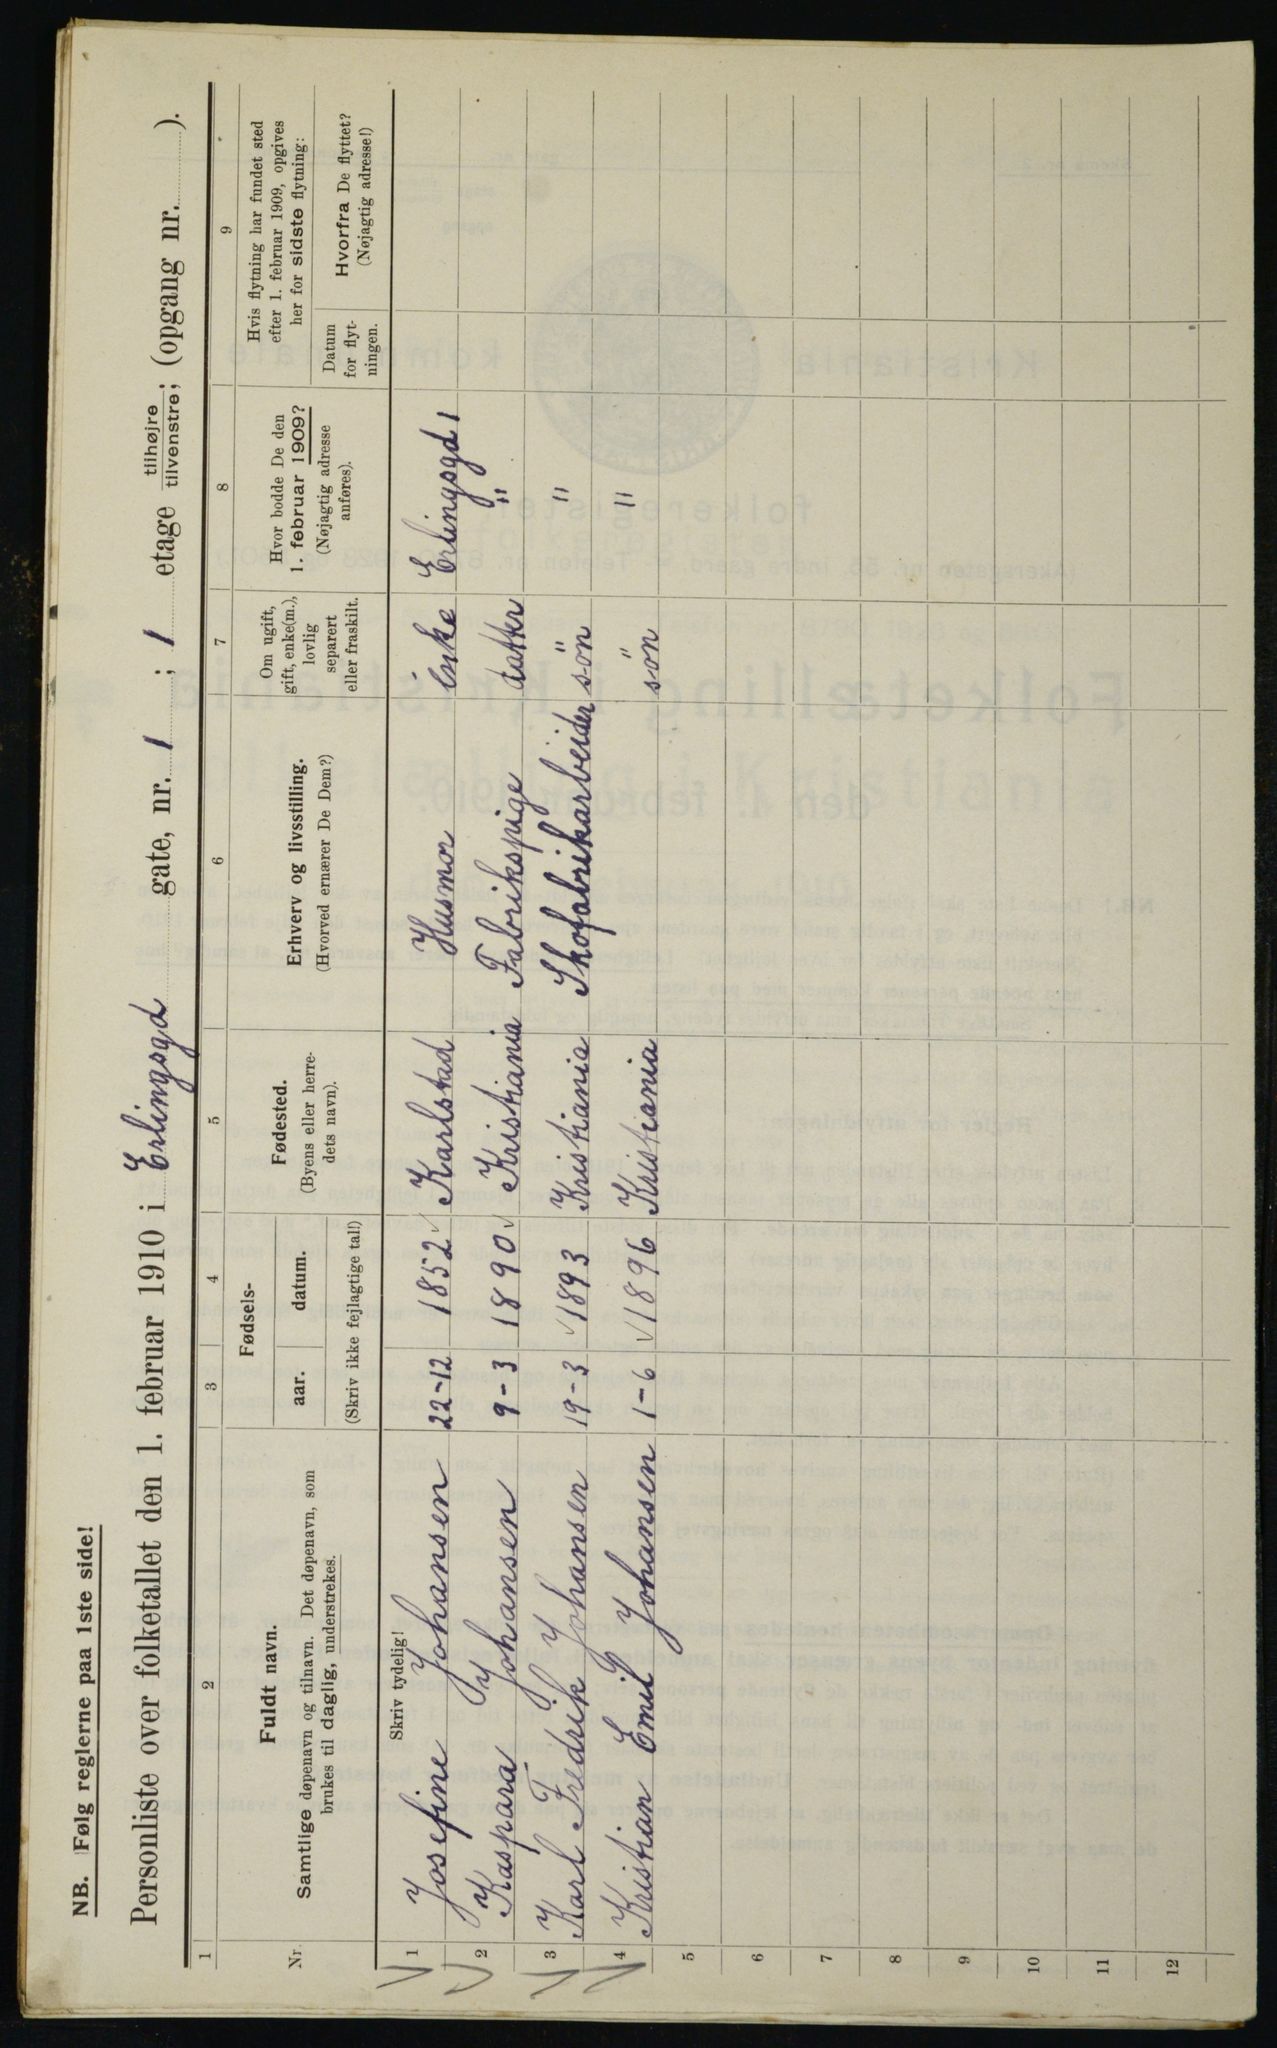 NB. Følg reglerne paa 1ste side!
Personliste over folketallet den 1. februar 1910 i Erlingsgd gate, nr. 1 ; 1 etage tilhøjre / tilvenstre; (opgang nr. ).
1 2 3 4 5 6 7 8 9
Nr.
Fuldt navn.
Samtlige døpenavn og tilnavn. Det døpenavn, som
brukes til daglig, understrekes.
Fødsels-
aar. datum.
(Skriv ikke fejlagtige tal!)
Fødested.
(Byens eller herre-
dets navn).
Erhverv og livsstilling.
(Hvorved ernærer De Dem?)
Om ugift,
gift, enke(m.),
lovlig
separert
eller fraskilt.
Hvor bodde De den
1. februar 1909?
(Nøjagtig adresse
anføres).
Hvis flytning har fundet sted
efter 1. februar 1909, opgives
her for sidste flytning:
Datum
for flyt-
ningen.
Hvorfra De flyttet?
(Nøjagtig adresse!)
Skriv tydelig!
1 Josefine Johansen 22-12 1852 Karlstad Husmor Enke Erlingsgd 1
2 Kaspara Johansen 9-3 1890 Kristiania Fabrikspige datter "
3 Karl Fredrik Johansen 19-3 1893 Kristiania Skofabrikarbeider søn "
4 Kristian Emil Johansen 1-6 1896 Kristiania søn "
5
6
7
8
9
10
11
12